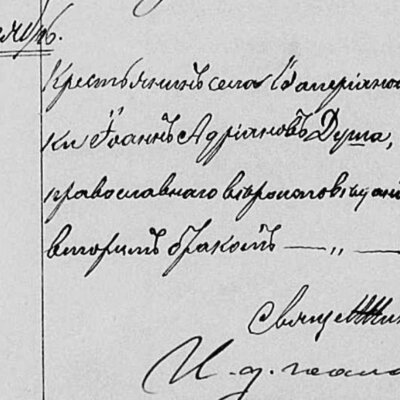 Крестьянинъ села Валеріанов
ки Іоаннъ Адріановъ Душа,
православнаго вѣроисповѣдані
вторымъ бракомъ — „ —
Священни
И. д. псало